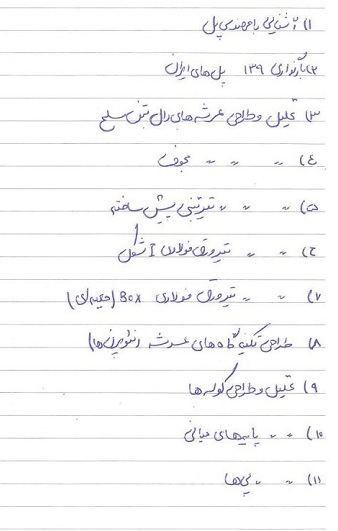 ۱) آشنایی با مهندسی پل
۲) بارگذاری ۱۳۹ پل های ایران
۳) تحلیل و طراحی عرشه های دال بتن مسلح
۴) " " " " مجوف
۵) " " " تیر بتنی پیش ساخته
۶) " " " تیرورق فولادی I شکل
۷) " " " تیرورق فولادی Box (جعبه ای)
۸) طراحی تکیه گاه های عرشه (نئوپرن ها)
۹) تحلیل و طراحی کوله ها
۱۰) " " پایه های میانی
۱۱) " " پی ها